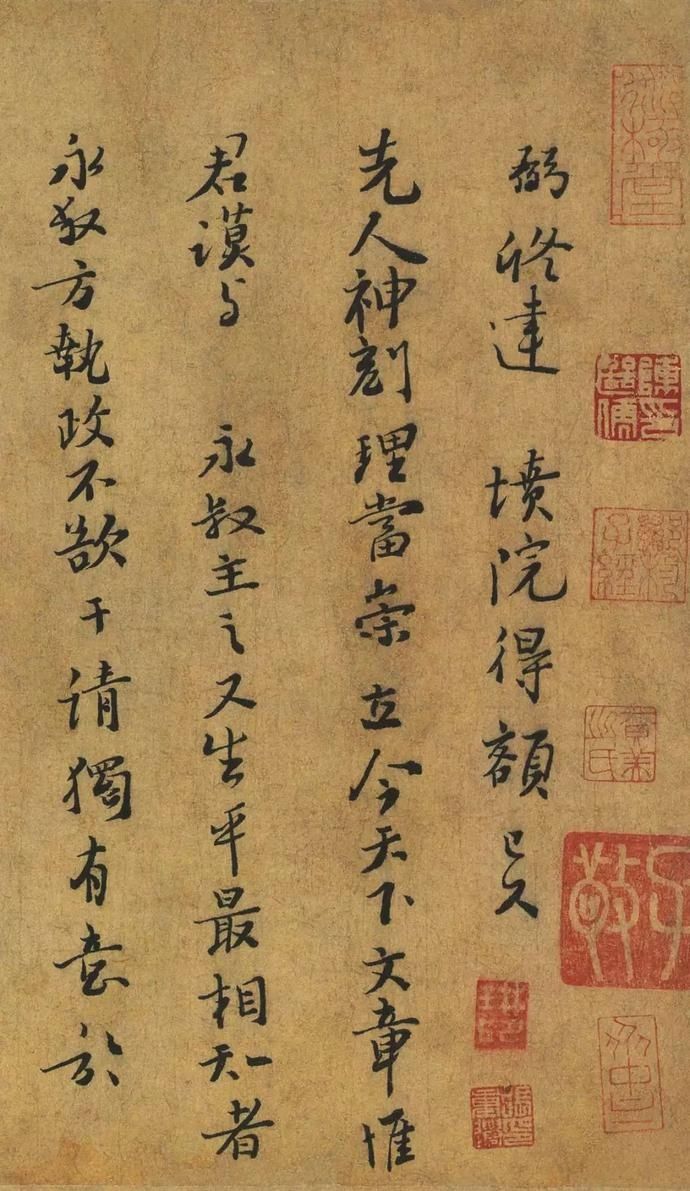 弼修建 墳院得額已久
先人神刻理當崇立今天下文章惟
君謨与 永叔主之又生平最相知者
永叔方執政不欲干請獨有意於